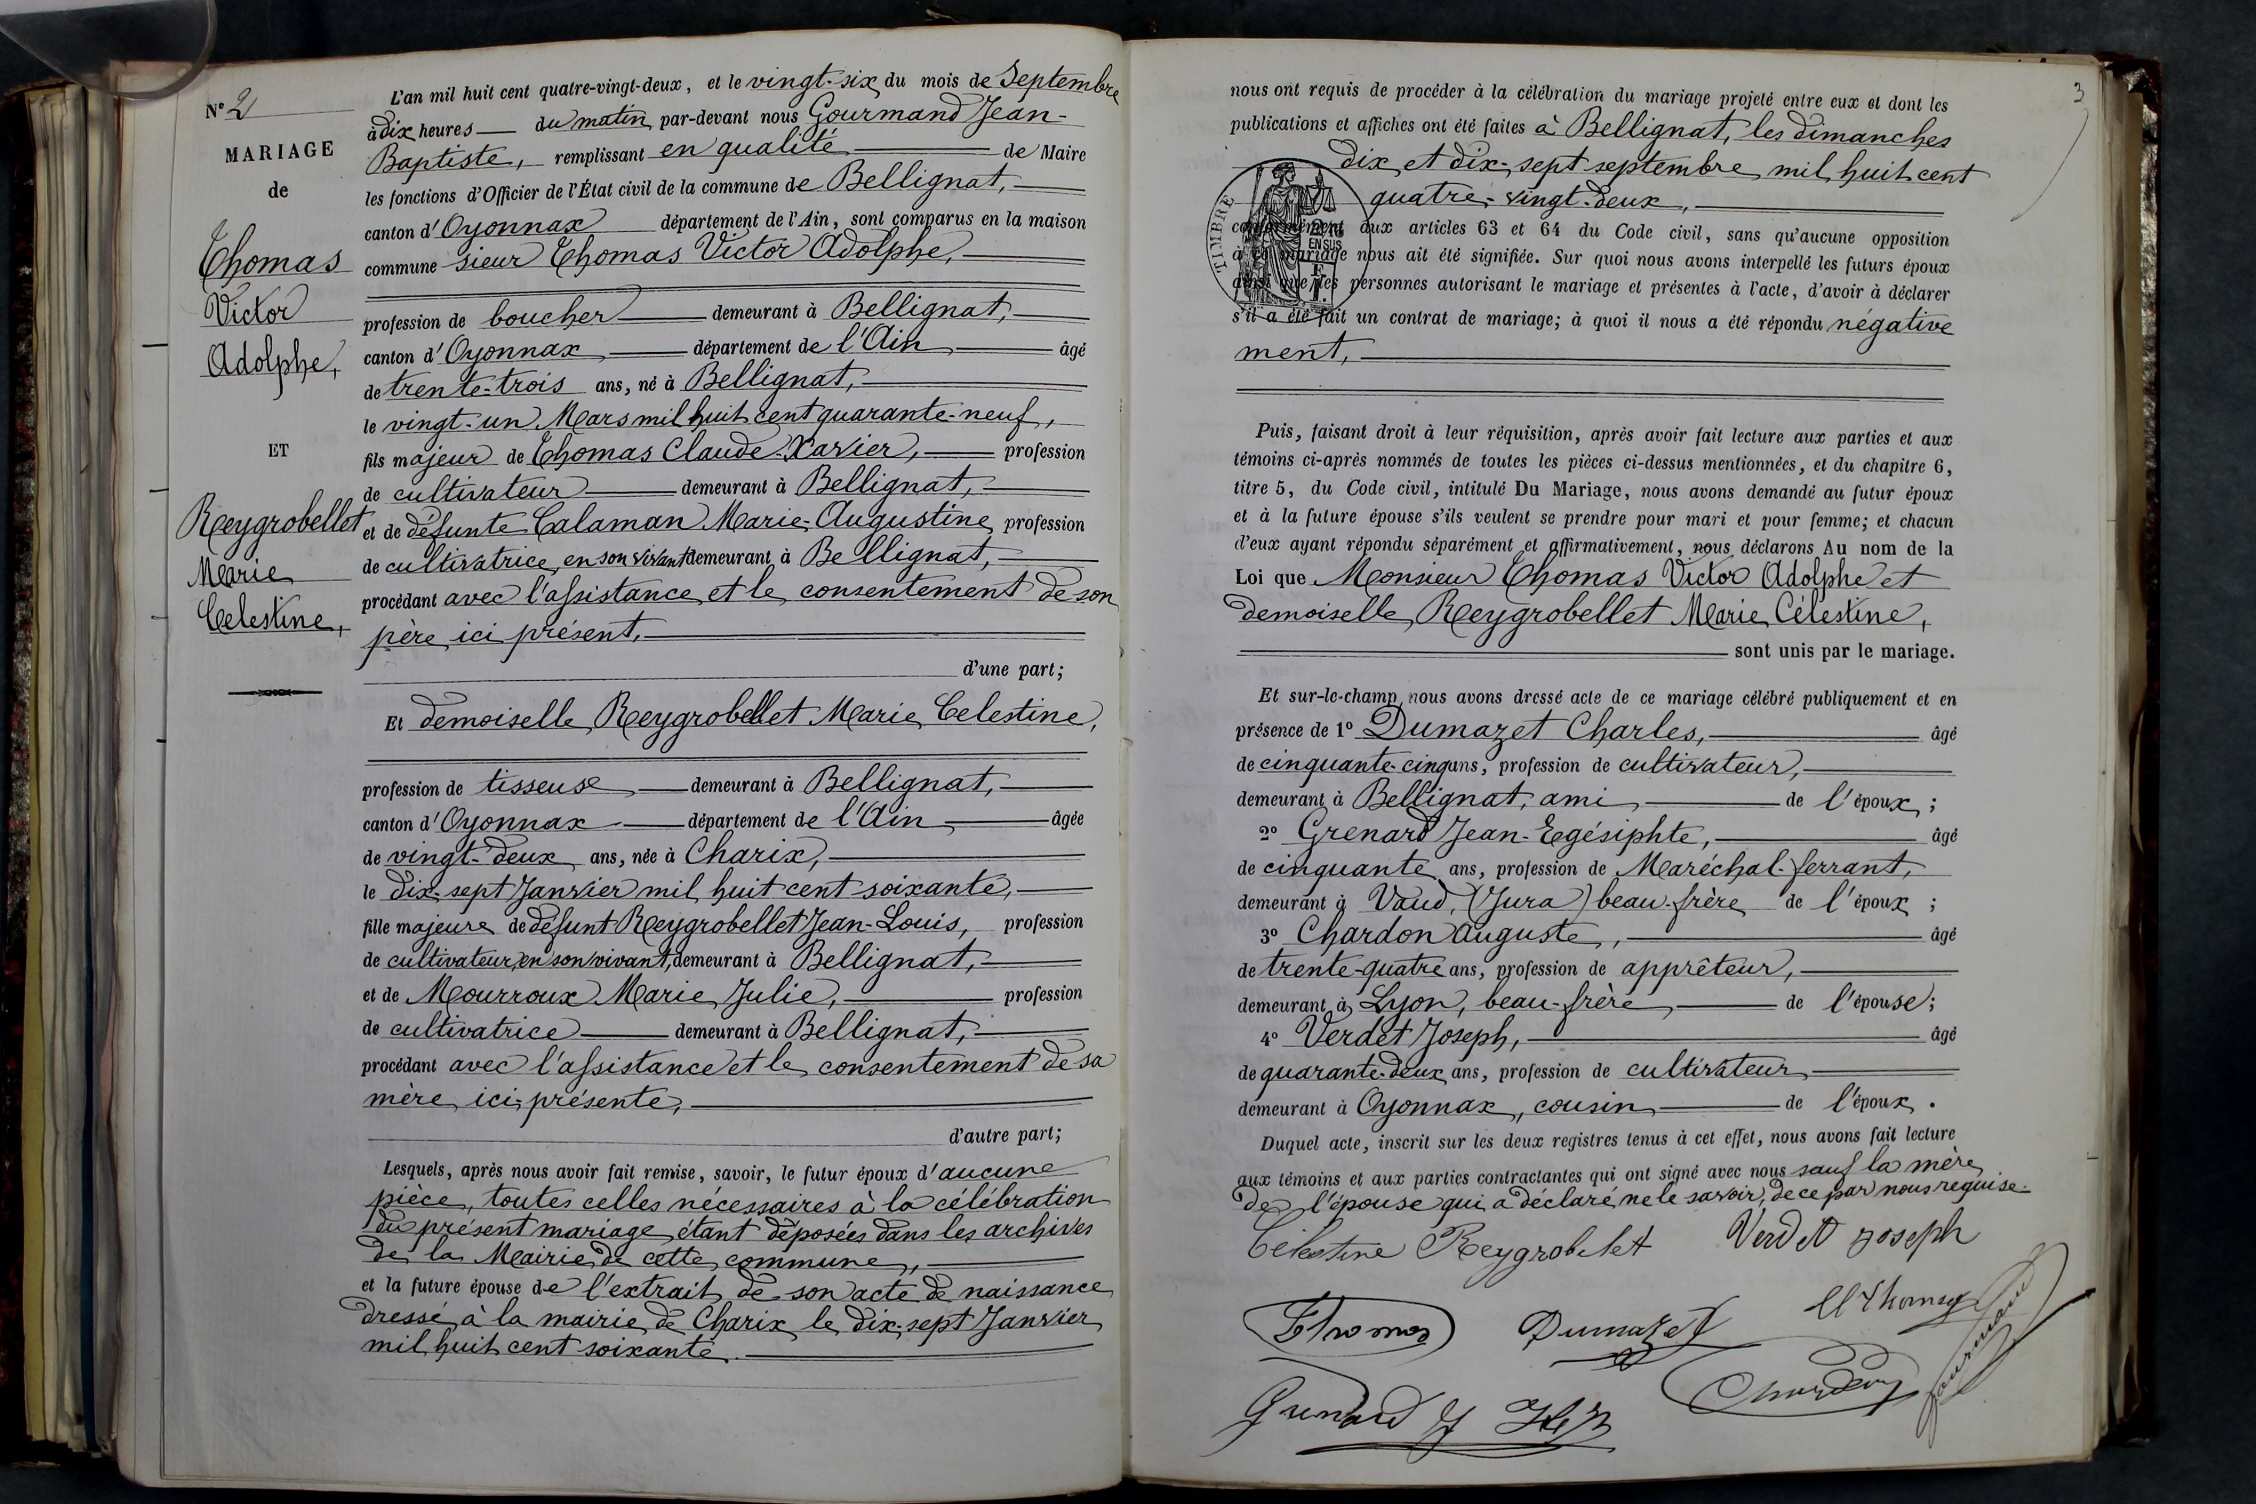 N° 2
MARIAGE
de
Thomas
Victor
Adolphe,
ET
Reygrobellet
Marie
Celestine,
L'an mil huit cent quatre-vingt-deux, et le vingt-six du mois de Septembre
à dix heures du matin par-devant nous Gourmand Jean-
Baptiste, remplissant en qualité de Maire
les fonctions d'Officier de l'État civil de la commune de Bellignat,
canton d'Oyonnax département de l'Ain, sont comparus en la maison
commune sieur Thomas Victor Adolphe,
profession de boucher demeurant à Bellignat,
canton d'Oyonnax département de l'Ain âgé
de trente-trois ans, né à Bellignat,
le vingt-un Mars mil huit cent quarante-neuf,
fils majeur de Thomas Claude-Xavier, profession
de cultivateur demeurant à Bellignat,
et de défunte Calaman Marie-Augustine profession
de cultivatrice, en son vivant demeurant à Bellignat,
procédant avec l'assistance et le consentement de son
père ici présent,
d'une part;
Et demoiselle Reygrobellet Marie Celestine,
profession de tisseuse demeurant à Bellignat,
canton d'Oyonnax département de l'Ain âgée
de vingt-deux ans, née à Charix,
le dix-sept Janvier mil huit cent soixante,
fille majeure de défunt Reygrobellet Jean-Louis, profession
de cultivateur, en son vivant, demeurant à Bellignat,
et de Mourroux Marie Julie, profession
de cultivatrice demeurant à Bellignat,
procédant avec l'assistance et le consentement de sa
mère ici présente,
d'autre part;
Lesquels, après nous avoir fait remise, savoir, le futur époux d'aucune
pièce, toutes celles nécessaires à la célébration
du présent mariage étant déposées dans les archives
de la Mairie de cette commune,
et la future épouse de l'extrait de son acte de naissance
dressé à la mairie de Charix le dix-sept Janvier
mil huit cent soixante.
3
nous ont requis de procéder à la célébration du mariage projeté entre eux et dont les
publications et affiches ont été faites à Bellignat, les dimanches
dix et dix-sept septembre mil huit cent
quatre-vingt-deux,
TIMBRE
2/10
EN SUS
conformément aux articles 63 et 64 du Code civil, sans qu'aucune opposition
à ce mariage nous ait été signifiée. Sur quoi nous avons interpellé les futurs époux
ainsi que les personnes autorisant le mariage et présentes à l'acte, d'avoir à déclarer
s'il a été fait un contrat de mariage; à quoi il nous a été répondu négative
ment,
Puis, faisant droit à leur réquisition, après avoir fait lecture aux parties et aux
témoins ci-après nommés de toutes les pièces ci-dessus mentionnées, et du chapitre 6,
titre 5, du Code civil, intitulé Du Mariage, nous avons demandé au futur époux
et à la future épouse s'ils veulent se prendre pour mari et pour femme; et chacun
d'eux ayant répondu séparément et affirmativement, nous déclarons Au nom de la
Loi que Monsieur Thomas Victor Adolphe et
demoiselle Reygrobellet Marie Célestine,
sont unis par le mariage.
Et sur-le-champ nous avons dressé acte de ce mariage célébré publiquement et en
présence de 1° Dumazet Charles, âgé
de cinquante-cinq ans, profession de cultivateur,
demeurant à Bellignat, ami de l'époux;
2° Grenard Jean-Egésiphte, âgé
de cinquante ans, profession de Maréchal-ferrant,
demeurant à Vaud, (Jura) beau-frère de l'époux;
3° Chardon Auguste, âgé
de trente-quatre ans, profession de apprêteur,
demeurant à Lyon, beau-frère de l'épouse;
4° Verdet Joseph, âgé
de quarante-deux ans, profession de cultivateur
demeurant à Oyonnax, cousin de l'époux.
Duquel acte, inscrit sur les deux registres tenus à cet effet, nous avons fait lecture
aux témoins et aux parties contractantes qui ont signé avec nous sauf la mère
de l'épouse qui a déclaré ne le savoir, de ce par nous requise.
Célestine Reygrobelet Verdet Joseph
Thomas Dumazet Thomas
Grenard J Chardon Gourmand